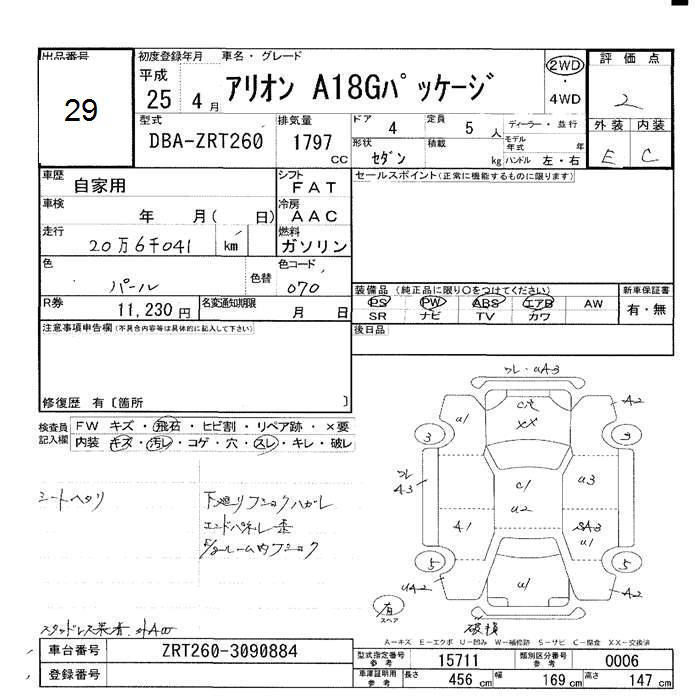 出品番号
29
初度登録年月
平成
25 4 月
車名・グレード
アリオン A18Gパッケージ
2WD
・
4WD
評価点
2
型式
DBA-ZRT260
排気量
1797
CC
ドア
4
定員
5 人
ディーラー・並行
形状
セダン
積載
kg
モデル年式
年
ハンドル 左・右
外装 内装
E C
車歴
自家用
シフト
FAT
セールスポイント(正常に機能するものに限ります)
車検
年 月( 日)
冷房
AAC
走行
20万6千041
km
燃料
ガソリン
色
パール
色替
色コード
070
R券
11,230円
名変通知期限
月 日
装備品 (純正品に限り○をつけてください)
PS PW ABS エアB AW
SR ナビ TV カワ
新車保証書
有・無
注意事項申告欄(不具合内容等は具体的に記入して下さい)
後日品
修復歴 有〔箇所 〕
検査員
記入欄
FW キズ・飛石・ヒビ割・リペア跡・×要
内装 キズ・汚レ・コゲ・穴・スレ・キレ・破レ
シートヘタリ
下廻りフショクハガレ
エンドパネル歪
E/gルーム内フショク
ワレ・UA3
U1
A2
CR
XX
3
3
ワレ
A3
C1
U2
U3
A1
SA3
U1
5
5
UA2
U1
A2
有
スペア
破損
A-キズ E-エクボ U-凹み W-補修跡 S-サビ C-腐食 XX-交換済
車台番号
ZRT260-3090884
登録番号
型式指定番号
参考
15711
類別区分番号
参考
0006
車庫証明用
参考
長さ
456 cm
幅
169 cm
高さ
147 cm